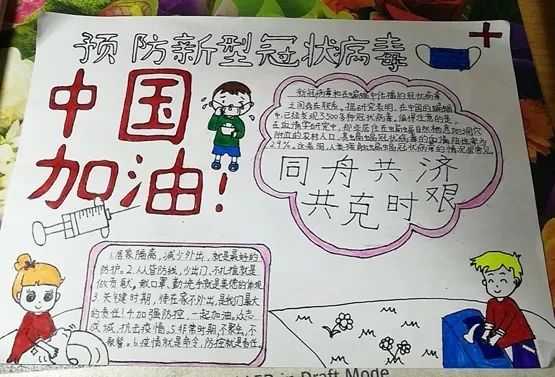 预防新型冠状病毒
中国
加油!
新冠病毒和在蝙蝠中传播的冠状病毒
之间存在联系。据研究表明,在中国的蝙蝠
中已经发现了500多种冠状病毒。值得注意的是,
在血清学研究中,那些居住在
的农村人口,其蝙蝠冠状病毒的血清阳性率为
2.9%,这表明,人类接触蝙蝠冠状病毒的情况很常见
同舟共济
共克时艰
1.居家隔离,减少外出,就是最好的
防护。2.人人皆防线,少出门、不扎推就是
做贡献。戴口罩,勤洗手就是美德的体现
3.关键时期,待在家不外出,是我们最大
的责任!4.加强防控,一起加油,众志
成城,抗击疫情。5.非常时期,不聚会,不
聚餐。6.疫情就是命令,防控就是责任。
in Draft Mode